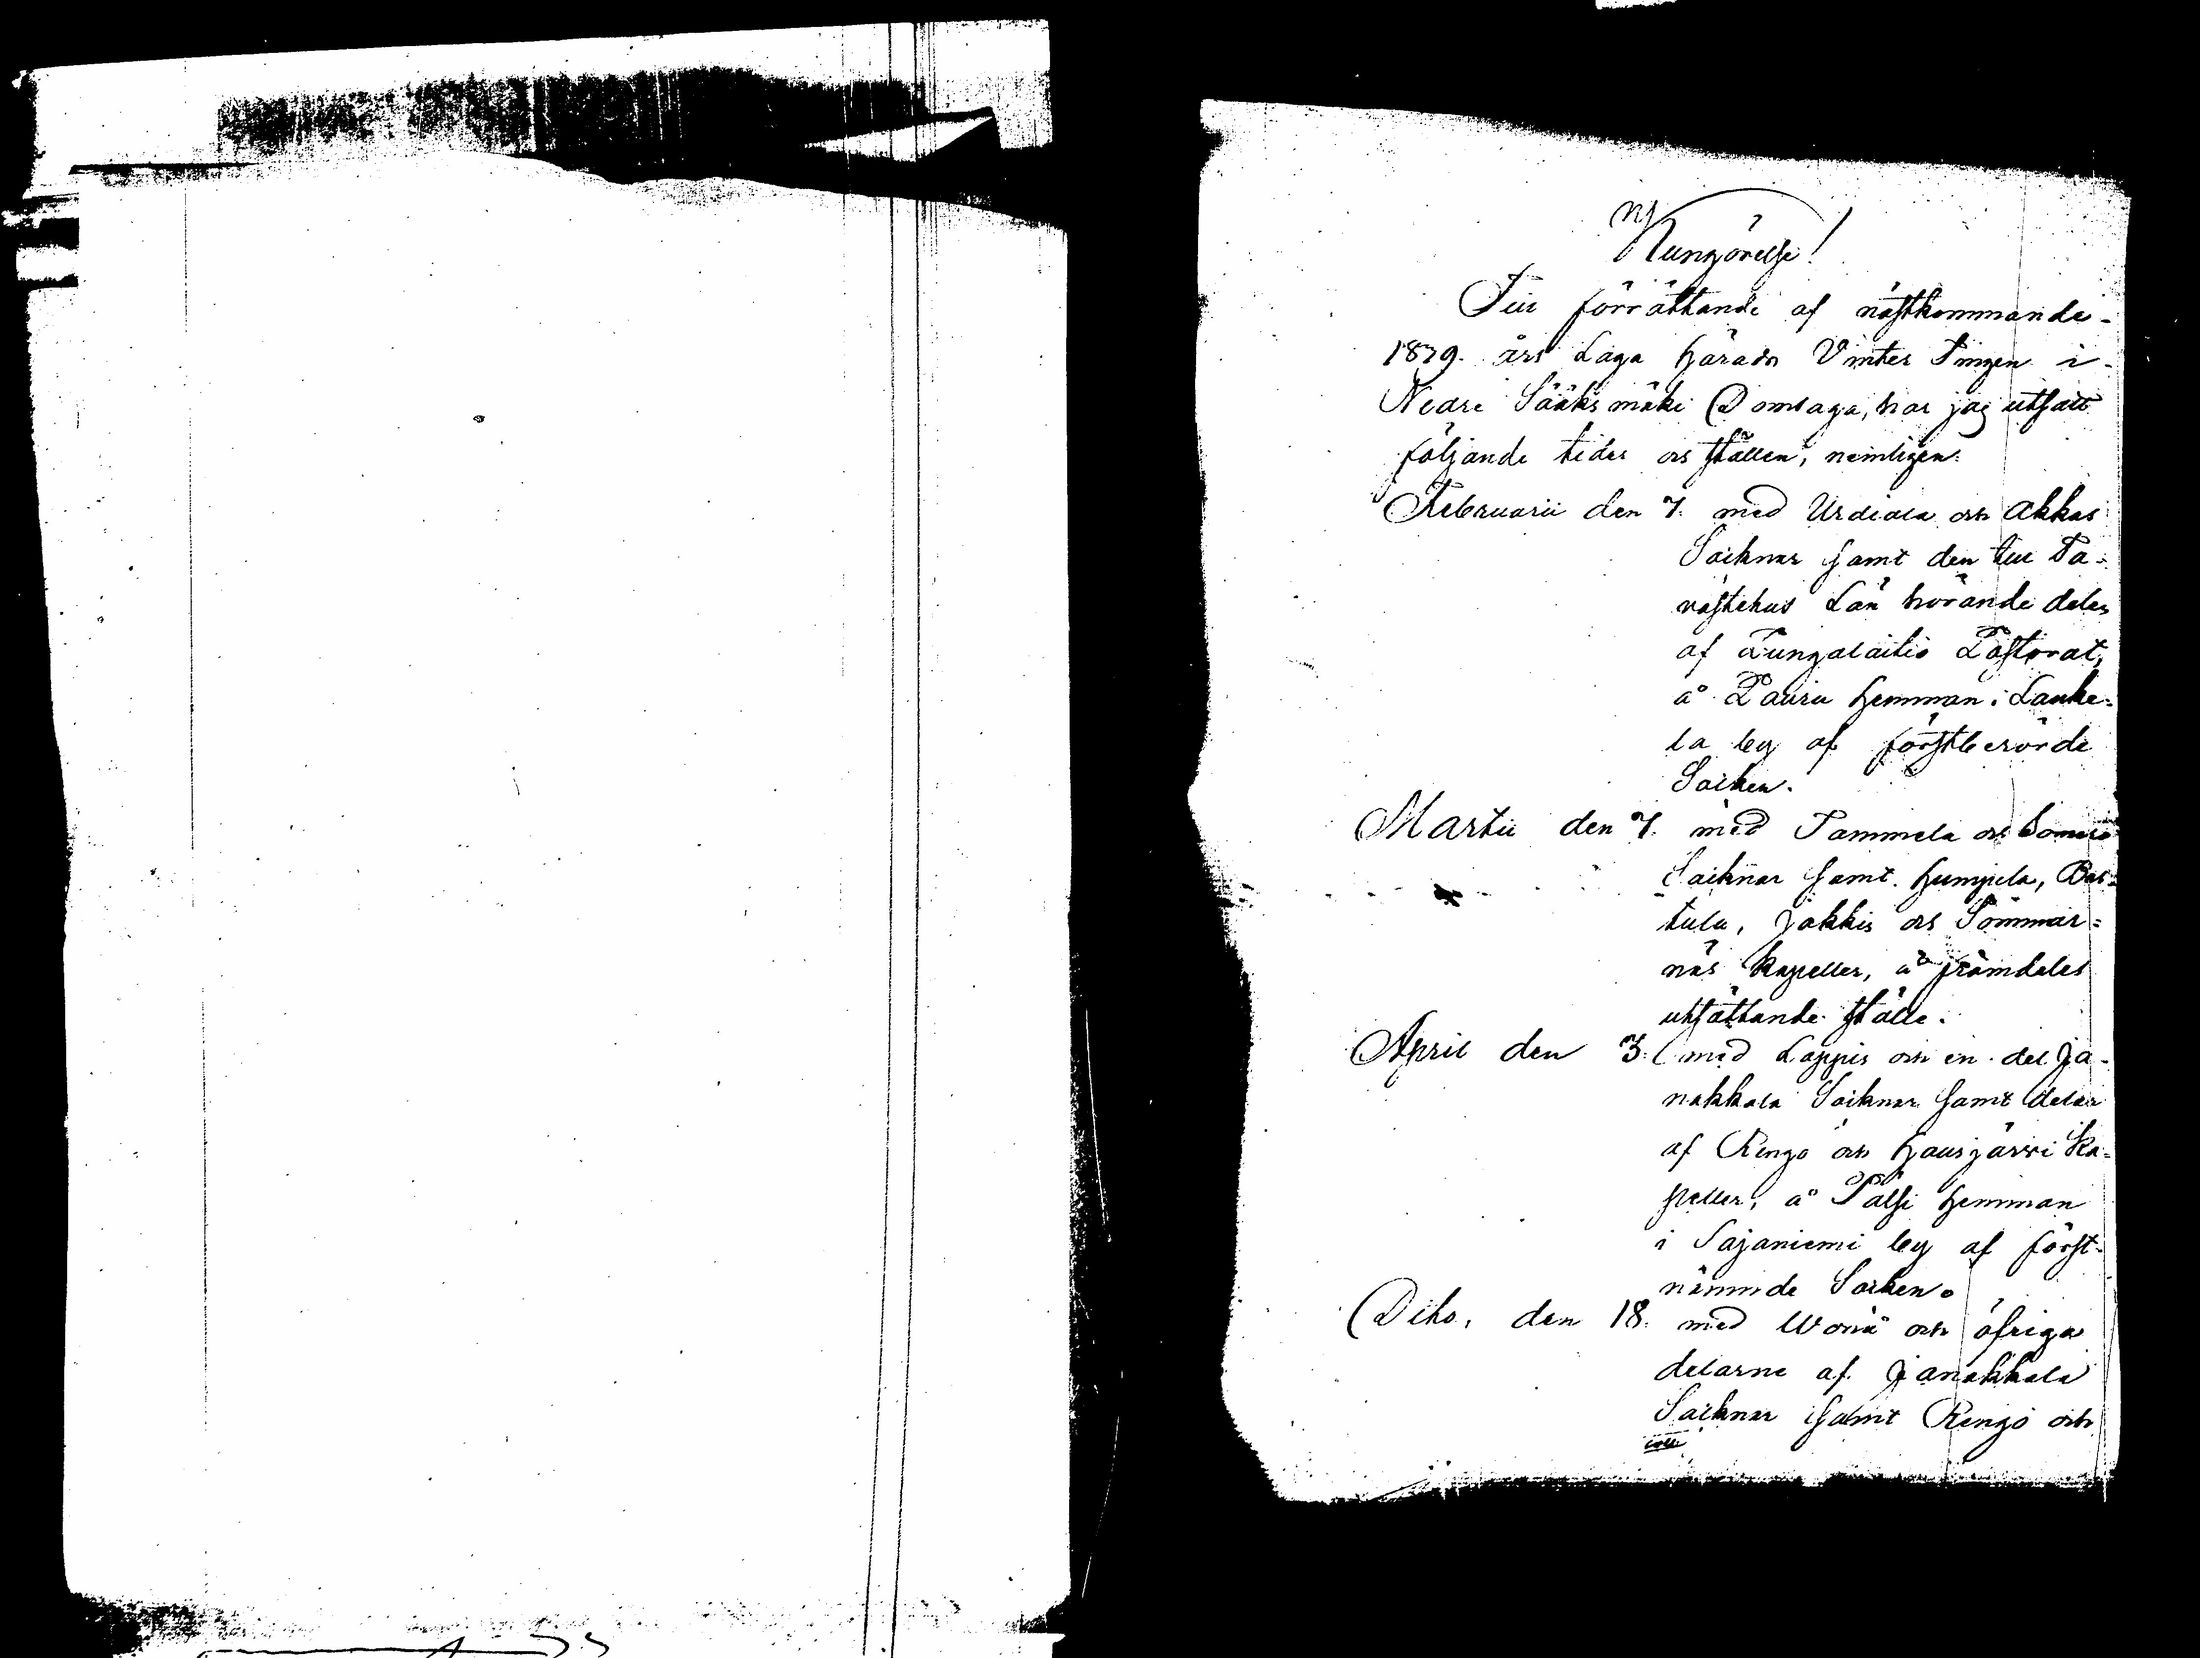 Kungörelse!
Till förrättande af nästkommande
1839. års Laga Härads Vinter Tingen i
Nedre Sääksmäki Domsaga, har jag utsatt
följande tider och ställen, nemligen:
Februarii den 7. med Urdiala och Akkas
Socknar samt den till Ta-
vastehus Län hörande delen
af Pungalaitio Pastorat,
å Pauru Hemman i Lauke-
la by af förstberörde
Socken.
Martii den 7. med Tammela och Somero
Socknar samt Humppila,
tula, Jokkis och Sommar-
näs Kapeller, å framdeles
utsättande ställe.
April den 3. med Loppis och en del Ja-
nakkala Socknar samt delar
af Rengo och Hausjärvi Ka-
peller, å Pälsi Hemman
i Sajaniemi by af först-
nämnde Socken.
Dito, den 18. med Wånå och öfriga
delarne af Janakkala
Socknar samt Rengo och